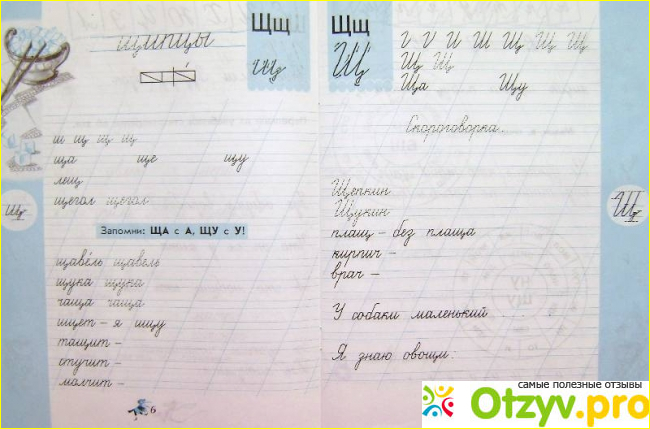 щипцы
Щщ
Щщ
ш щ щ щ
ща ще щу
лещ
щегол щегол
Щщ
Запомни: ЩА с А, ЩУ с У!
щавель щавель
щука щука
чаща чаща
ищет – я ищу
тащит –
стучит –
молчит –
6
Щщ
Щ
И Ш Щ Щ Щ
Щ Щ
Ща Щу
Скороговорка.
Щепкин
Щукин
плащ – без плаща
кирпич –
врач –
У собаки маленький
Я знаю овощи:
Щ
самые полезные отзывы
Otzyv.pro